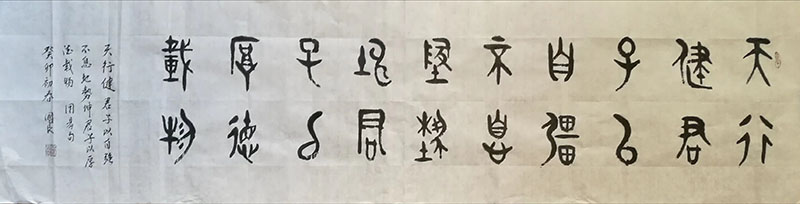 天行
健君
子以
自彊
不息
地埶
坤君
子以
厚德
載物
天行健君子以自強
不息地勢坤君子以厚
德載物 周易句
癸卯初春